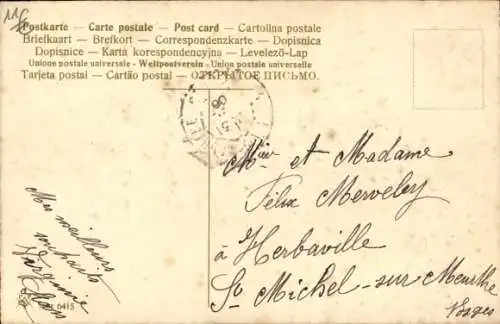 116
Postkarte — Carte postale — Post card — Cartolina postale
Briefkaart — Brefkort — Correspondenzkarte — Dopisnica
Dopisnice — Karta korespondencyjna — Levelező-Lap
Unione postale universale - Weltpostverein - Union postale universelle
Tarjeta postal — Cartão postal — ОТКРЫТОЕ ПИСЬМО.
Mr et Madame
Félix Merveley
à Herbaville
St Michel-sur Meurthe
Vosges
Mes meilleurs
souhaits
6415